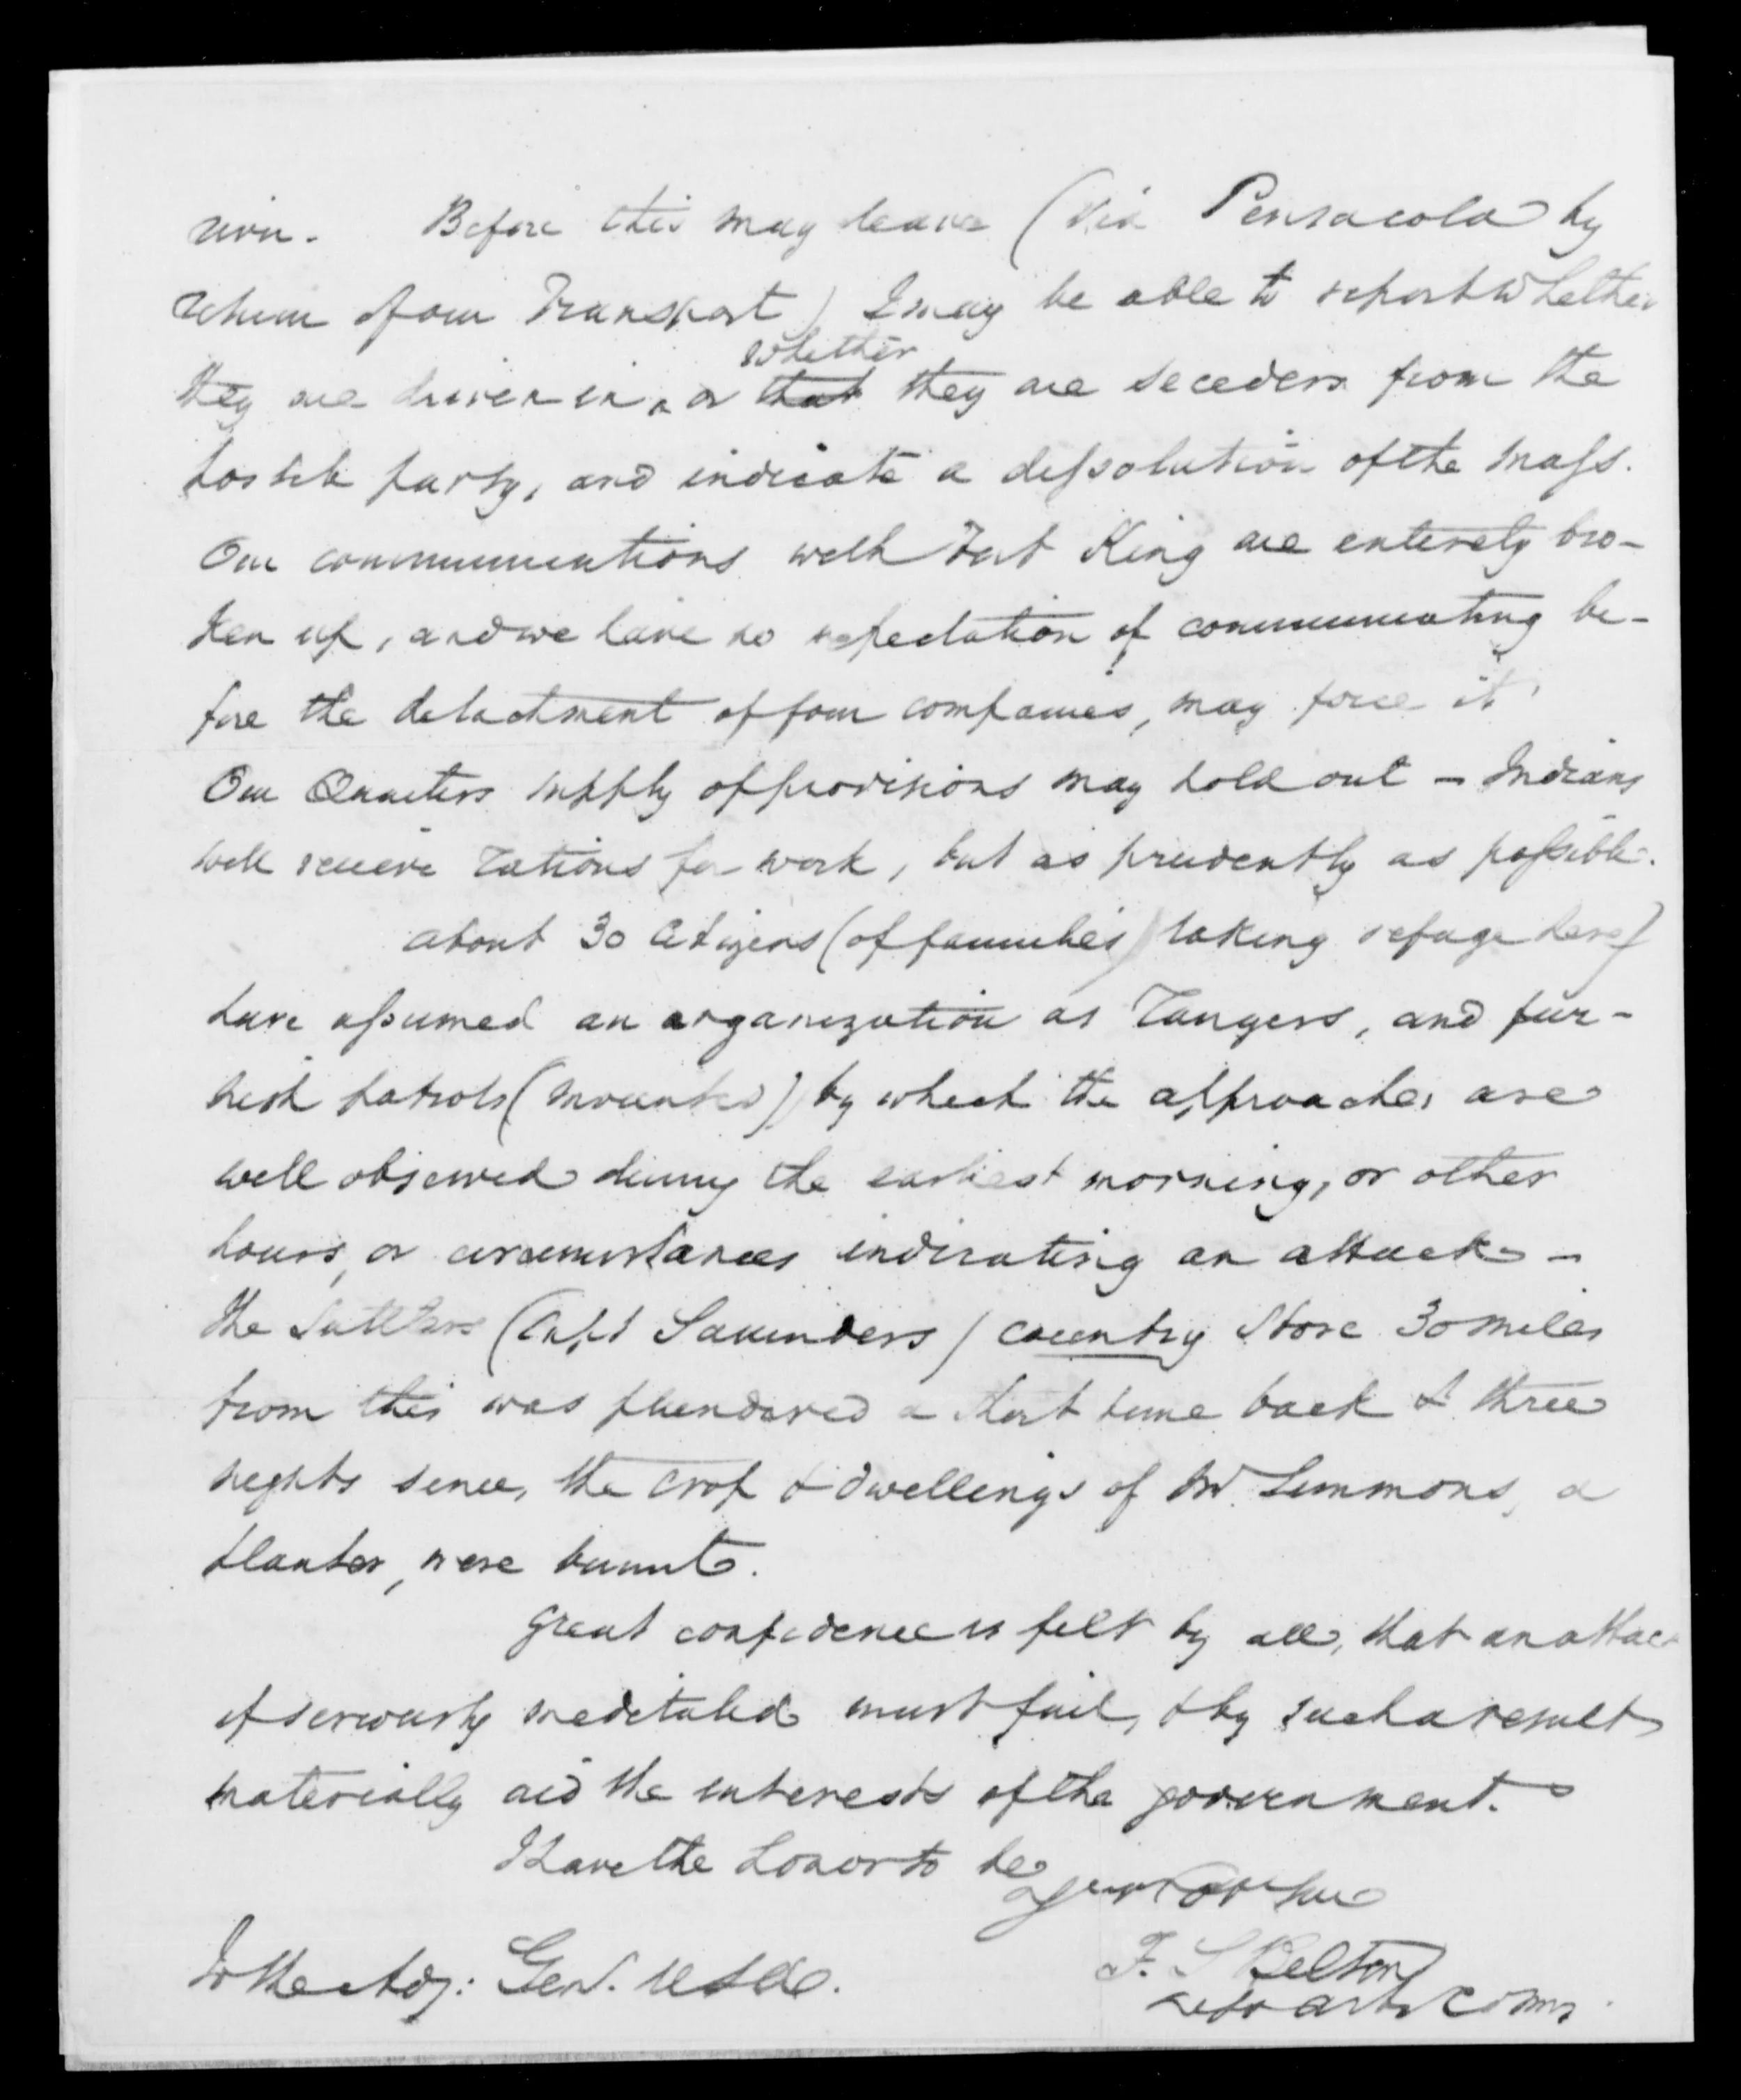 river. Before this may leave (via Pensacola by
return of our Transport) I may be able to report whether
whether
they are driven in, or that they are seceders from the
hostile party, and indicate a dissolution of the mass.
Our communications with Fort King are entirely bro-
ken up, and we have no expectation of communicating be-
fore the detachment of four companies, may force it.
Our Quarters supply of provisions may hold out – Indians
will receive rations for work, but as prudently as possible.
about 30 Citizens (of families) taking refuge here)
have assumed an organization as Rangers, and fur-
nish patrols (mounted) by which the approaches are
well observed during the earliest morning, or other
hours, or circumstances indicating an attack –
The Sutlers (Capt Saunders) country Store 30 miles
from this was plundered a short time back & three
nights since, the crop & dwellings of Mr Simmons, a
planter, were burnt.
Great confidence is felt by all, that an attack
if seriously meditated must fail, & by such a result
materially aid the interests of the government.
I have the honor to be
F. S Belton
To the Adj: Genl. USA.